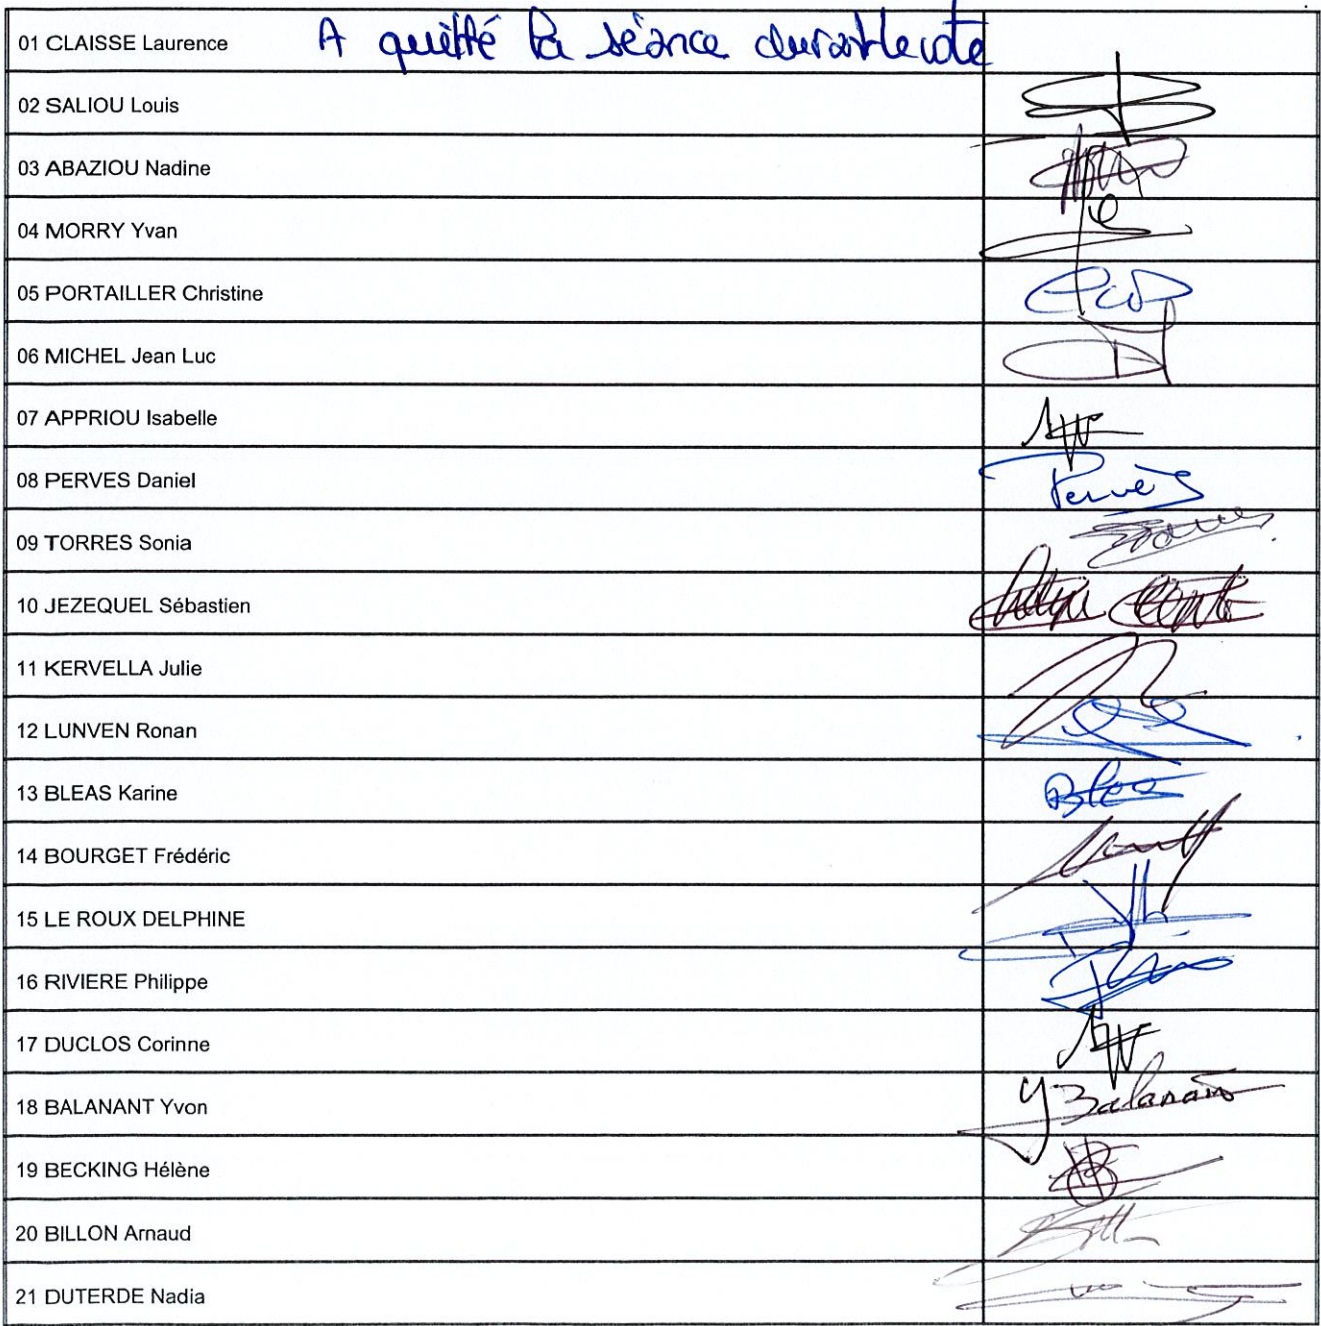 01 CLAISSE Laurence A quitté la séance durant le vote
02 SALIOU Louis
03 ABAZIOU Nadine
04 MORRY Yvan
05 PORTAILLER Christine
06 MICHEL Jean Luc
07 APPRIOU Isabelle
08 PERVES Daniel Pervès
09 TORRES Sonia
10 JEZEQUEL Sébastien
11 KERVELLA Julie
12 LUNVEN Ronan
13 BLEAS Karine
14 BOURGET Frédéric
15 LE ROUX DELPHINE
16 RIVIERE Philippe
17 DUCLOS Corinne
18 BALANANT Yvon Y Balanant
19 BECKING Hélène
20 BILLON Arnaud
21 DUTERDE Nadia